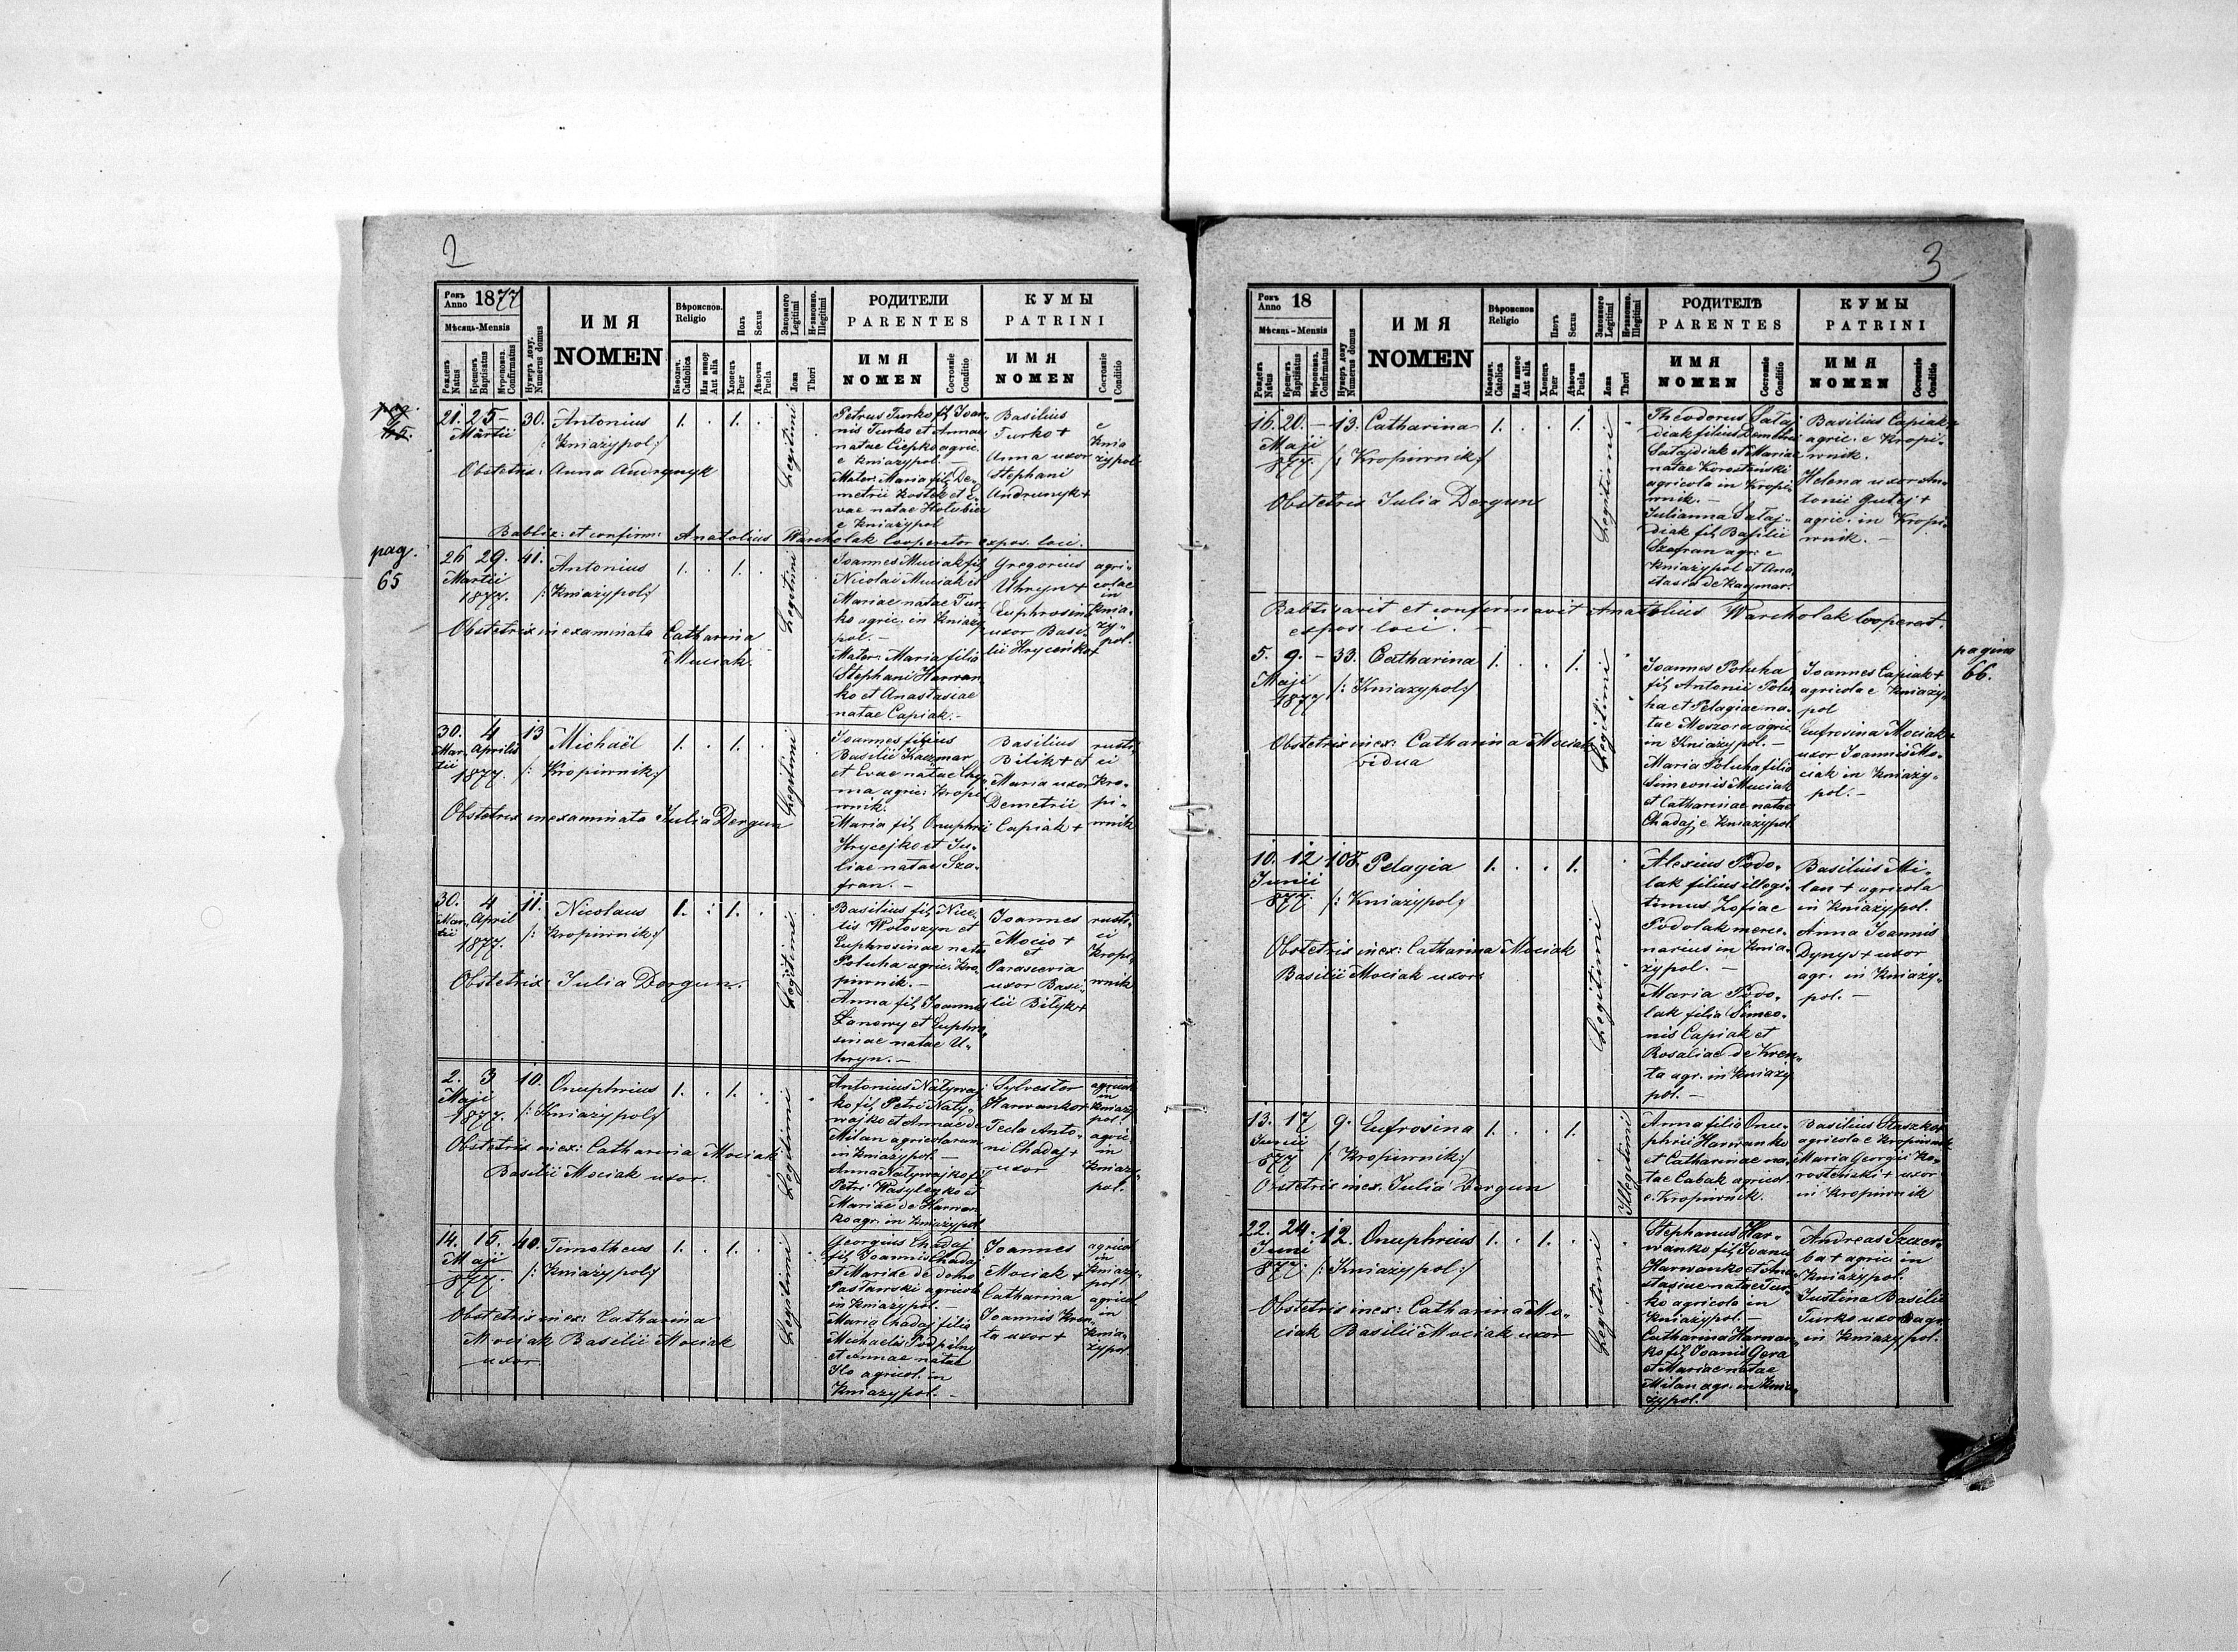 2
Рокъ Anno 1877
Мѣсяцъ-Mensis
Рожденъ Natus
Крещенъ Baptisatus
Мѵропомаз. Confirmatus
Нумеръ дому. Numerus domus
ИМЯ
NOMEN
Вѣроиспов. Religio
Католич. Catholica
Или инное Aut alia
Полъ Sexus
Хлопецъ Puer
Дѣвочка Puela
Законного Legitimi
Незаконно. Illegitimi
Ложа Thori
РОДИТЕЛИ
PARENTES
ИМЯ
NOMEN
Состояніе Conditio
КУМЫ
PATRINI
ИМЯ
NOMEN
Состояніе Conditio
21. 25 Martii
30.
Antonius
/: Kniazypol:/
1. . 1. .
Legitimi
Obstetrix: Anna Andrynyk
Petrus Turko fil. Joan-
nis Turko et Annae
natae Ciepko agric.
e Kniazypol. —
Mater: Maria fil. De-
metrii Kostek et E-
vae natae Holubiec
e Kniazypol
Basilius
Turko +
Anna uxor
Stephani
Andrunyk +
e
Knia
zypol
Babtiz: et confirm: Anatolius Warcholak Cooperator expos. loci.
pag.
65
26 29. Martii 1877.
41.
Antonius
/: Kniazypol:/
1. . 1. .
Legitimi
Obstetrix inexaminata Catharina
Muciak.
Joannes Muciak fil.
Nicolai Muciak et
Mariae natae Tur-
ko agric. in Kniazy-
pol. —
Mater: Maria filia
Stephani Harwan
ko et Anastasiae
natae Capiak. —
Gregorius
Uhryn +
Euphrosina
uxor Basi-
lii Hryceńko +
agri-
colae
in
Knia-
zy-
pol.
30. Martii 4 Aprilis 1877.
13
Michaël
/: Kropiwnik:/
1. . 1. .
Legitimi
Obstetrix inexaminata Julia Dergun
Joannes filius
Basilii Kaczmar
et Evae natae Chy-
ma agric: Kropi
wnik.
Maria fil. Onuphrii
Hrycejko et Ju-
liae natae Sza-
fran. —
Basilius
Bilik + et
Maria uxor
Demetrii
Capiak +
rusti-
ci
Kro-
pi-
wnik
30. Martii 4 April 1877.
11.
Nicolaus
/: Kropiwnik:/
1. . 1. .
Legitimi
Obstetrix: Julia Dergun.
Basilius fil. Nice-
tis Wołoszyn et
Euphrosinae natae
Poluha agric. Kro-
piwnik. —
Anna fil. Joannis
Łanowy et Euphro-
sinae natae U-
hryn. —
Joannes
Mocio +
et
Parascevia
uxor Basi-
lii Bilyk +
rusti-
ci
Kropi-
wnik
2. 3 Maji 1877.
10.
Onuphrius
/: Kniazypol:/
1. . 1. .
Legitimi
Obstetrix inex: Catharina Mociak
Basilii Mociak uxor.
Antonius Natywaj-
ko fil. Petri Naty-
wajko et Annae de
Milan agricolarum
in Kniazypol —
Anna Natywajko f.
Petri Wasylenko et
Mariae de Harwan
ko agr. in Kniazypol
Sylvester
Harwanko +
Tecla Anto-
ni Chadaj +
uxor
agricol.
in
Kniazy-
pol.
agric.
in
Kniazy-
pol.
14. 15. Maji 877.
40.
Timotheus
/: Kniazypol:/
1. . 1. .
Legitimi
Obstetrix inex: Catharina
Mociak Basilii Mociak
uxor
Georgius Chadaj
fil. Joannis Chadaj
et Mariae de domo
Pastawski agricola
in Kniazypol. —
Maria Chadaj filia
Michaelis Podpilny
et Annae natae
Ilo agricol. in
Kniazypol. —
Joannes
Mociak +
Catharina
Joannis Kren-
ta uxor +
agricol
in
Kniazy-
pol
agricol
in
Knia-
zypol
3
Рокъ Anno 18
Мѣсяцъ-Mensis
Рожденъ Natus
Крещенъ Baptisatus
Мѵропомаз. Confirmatus
Нумеръ дому Numerus domus
ИМЯ
NOMEN
Вѣроиспов Religio
Католич. Catolica
Или инное Aut alia
Полъ Sexus
Хлопецъ Puer
Дѣвочка Puela
Законного Legitimi
Незаконно. Illegitimi
Ложа Thori
РОДИТЕЛѢ
PARENTES
ИМЯ
NOMEN
Состояніе Conditio
КУМЫ
PATRINI
ИМЯ
NOMEN
Состояніе Conditio
16. 20. — Maji 877.
13.
Catharina
/: Kropiwnik:/
1. . . 1.
Legitimi
Obstetrix Julia Dergun
Theodorus Sataj
diak filius Demetrii
Satajdiak et Mariae
natae Korostański
agricola in Kropi-
wnik. —
Julianna Sataj-
diak fil. Basilii
Szafran agr. e
Kniazypol et Ana-
stasia de Kaczmar.
Basilius Capiak +
agric. e Kropi-
wnik.
Helena uxor An-
tonii Gutej +
agric. in Kropi-
wnik. —
Babtisavit et confirmavit Anatolius Warcholak Cooperat.
expos. loci. —
pagina
66.
5. 9. — Maji 1877
33.
Catharina
/: Kniazypol:/
1. . . 1.
Legitimi
Obstetrix inex: Catharina Mociak
vidua
Joannes Poluha
fil. Antonii Polu-
ha et Pelagiae na-
tae Moszora agric.
in Kniazypol. —
Maria Poluha filia
Simeonis Muciak
et Catharinae natae
Chadaj e Kniazypol.
Joannes Capiak +
agricola e Kniazy-
pol
Eufrosina Mociak +
uxor Joannis Mo-
ciak in Kniazy-
pol. —
10. 12 Junii 877.
Pelagia
/: Kniazypol:/
1. . . 1.
Legitimi
Obstetrix inex: Catharina Mociak
Basilii Mociak uxor.
Alexius Podo-
lak filius illegi-
timus Zofiae
Podolak merce-
narius in Knia-
zypol. —
Maria Podo-
lak filia Simeo-
nis Capiak et
Rosaliae de Kren-
ta agr. in Kniazy
pol. —
Basilius Mi-
lan + agricola
in Kniazypol.
Anna Joannis
Dynys + uxor
agr. in Kniazy-
pol. —
13. 17 Junii 877
9.
Eufrosina
/: Kropiwnik:/
1. . . 1.
Illegitimi
Obstetrix inex. Julia Dergun
Anna filia Onu-
phrii Harwanko
et Catharinae na-
tae Cabak agricol.
e Kropiwnik.
Basilius Staszko +
agricola e Kropiwnik
Maria Georgii Ko-
rosteński + uxor
in Kropiwnik
22. 24 Juni 877.
12.
Onuphrius
/: Kniazypol:/
1. . 1. .
Legitimi
Obstetrix inex: Catharina Mo-
ciak Basilii Mociak uxor
Stephanus Har-
wanko fil. Joanis
Harwanko et Ana-
stasiae natae Tur-
ko agricola in
Kniazypol. —
Catharina Harwan-
ko fil. Joanis Gera
et Mariae natae
Milan agr. in Knia-
zypol.
Andreas Szczer-
ba + agric. in
Kniazypol.
Justina Basilii
Turko uxor + agr.
in Kniazypol.